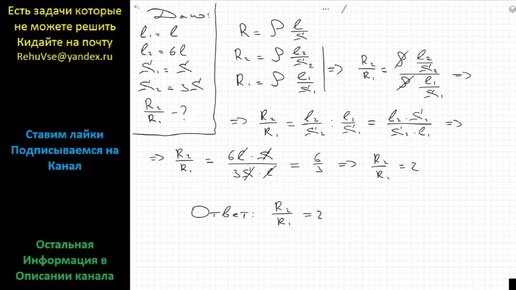 Есть задачи которые
не можете решить
Кидайте на почту
RehuVse@yandex.ru
Ставим лайки
Подписываемся на
Канал
Остальная
Информация в
Описании канала
Дано:
l₁ = l
l₂ = 6l
S₁ = S
S₂ = 3S
R₂/R₁ - ?
R = ρ l/S
R₂ = ρ l₂/S₂
R₁ = ρ l₁/S₁
=> R₂/R₁ = (ρ l₂/S₂)/(ρ l₁/S₁) =>
=> R₂/R₁ = l₂/S₂ : l₁/S₁ = (l₂·S₁)/(S₂·l₁) =>
=> R₂/R₁ = (6l·S)/(3S·l) = 6/3 => R₂/R₁ = 2
Ответ: R₂/R₁ = 2